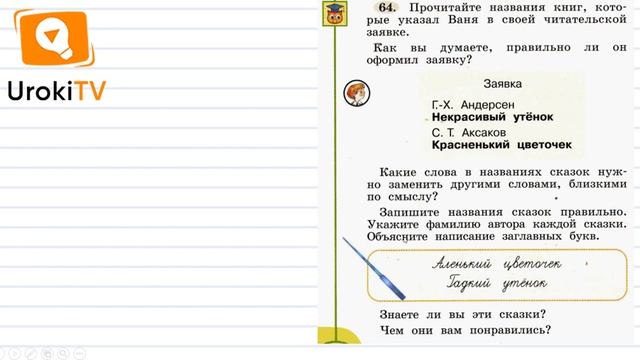 UrokiTV
64. Прочитайте названия книг, кото-
рые указал Ваня в своей читательской
заявке.
Как вы думаете, правильно ли он
оформил заявку?
Заявка
Г.-Х. Андерсен
Некрасивый утёнок
С. Т. Аксаков
Красненький цветочек
Какие слова в названиях сказок нуж-
но заменить другими словами, близкими
по смыслу?
Запишите названия сказок правильно.
Укажите фамилию автора каждой сказки.
Объясните написание заглавных букв.
Аленький цветочек
Гадкий утёнок
Знаете ли вы эти сказки?
Чем они вам понравились?